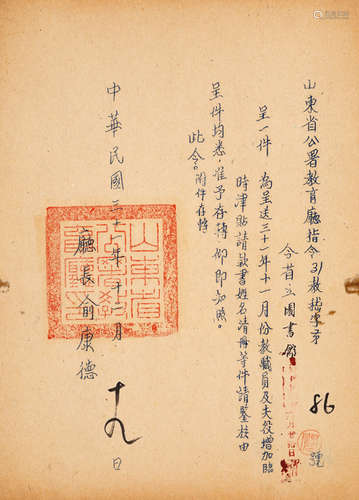 山東省公署教育廳指令 31教 字第 86 號
令省立圖書館
呈一件 為呈送三十一年十一月份教職員及夫役增加臨
時津貼請款書姓名清冊等件請鑒核由
呈件均悉准予存轉仰即知照
此令。附件存轉
中華民國三十一年十二月
十九日
廳長俞康德
山東省公署教育廳印